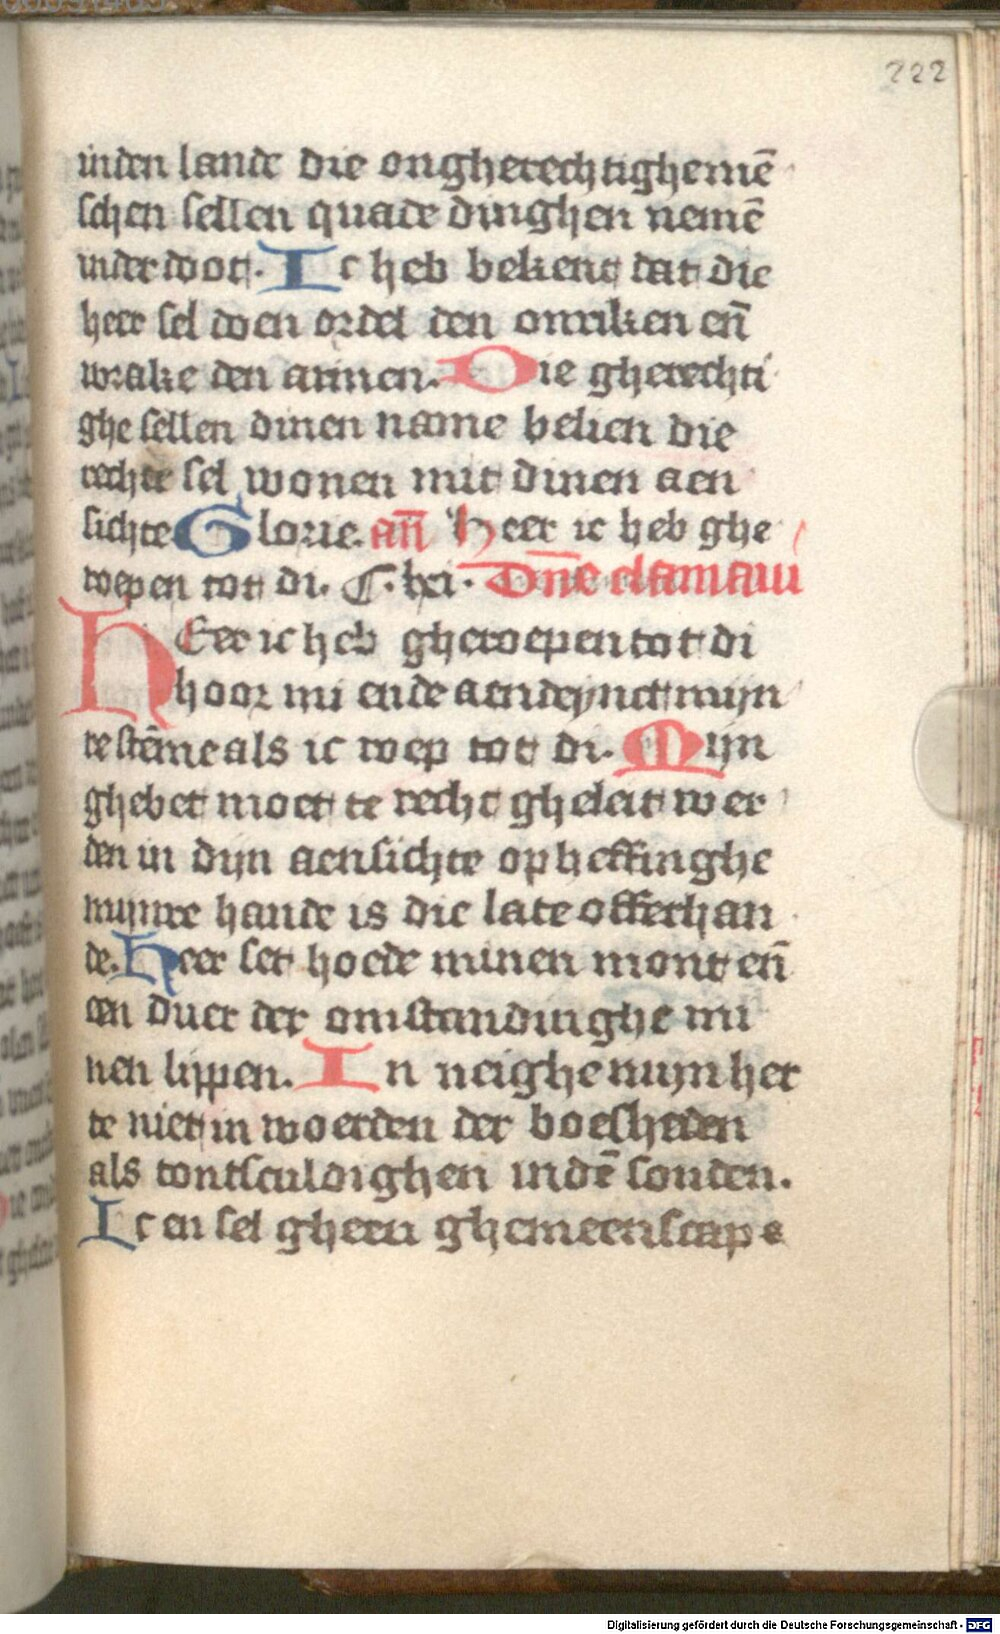 222
inden lande die ongherechtighe mē
schen sellen quade dinghen nemē
inder doot. Ic heb bekent dat die
heer sel doen ordel den onriken en̄
wrake den armen. Die gherechti
ghe sellen dinen name belien die
rechte sel wonen mit dinen aen
sichte Glorie. an̄ Heer ic heb ghe
roepen tot di. Dn̄e clamaui
HEer ic heb gheroepen tot di
hoor mi ende aendeynct mijn
re stēme als ic roep tot di. Mijn
ghebet moet te recht gheleit wer
den in dijn aensichte opheffinghe
mijnre hande is die late offerhan
de. Heer set hoede minen mont en̄
een duer der omstandinghe mi
nen lippen. In neighe mijn her
te niet in woerden der boesheden
als tontsculdighen in dē sonden.
Ic en sel gheen ghemeenscape
Digitalisierung gefördert durch die Deutsche Forschungsgemeinschaft - DFG